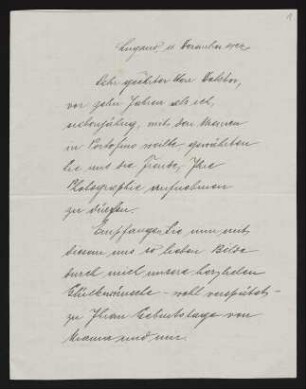 Lugano, 11 Dezember 1922
Sehr geehrter Herr Doktor,
vor zehn Jahren als ich,
siebenjährig, mit den Meinen
in Portofino weilte gewährten
Sie uns die Freude, Ihre
Photographie aufnehmen
zu dürfen.
Empfangen Sie nun mit
diesem uns so lieben Bilde
durch mich unsere herzlichen
Glückwünsche – wohl verspätet –
zu Ihrem Geburtstage von
Mama und mir.